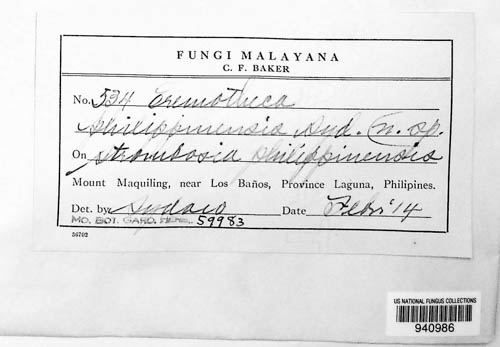 FUNGI MALAYANA
C. F. BAKER
No. 534 Eremotheca
philippinensis Syd. (n. sp.
On Strombosia philippinensis
Mount Maquiling, near Los Baños, Province Laguna, Philipines.
Det. by Sydow Date Feb. '14
MO. BOT. GARD. HERB. 59983
56702
US NATIONAL FUNGUS COLLECTIONS
940986